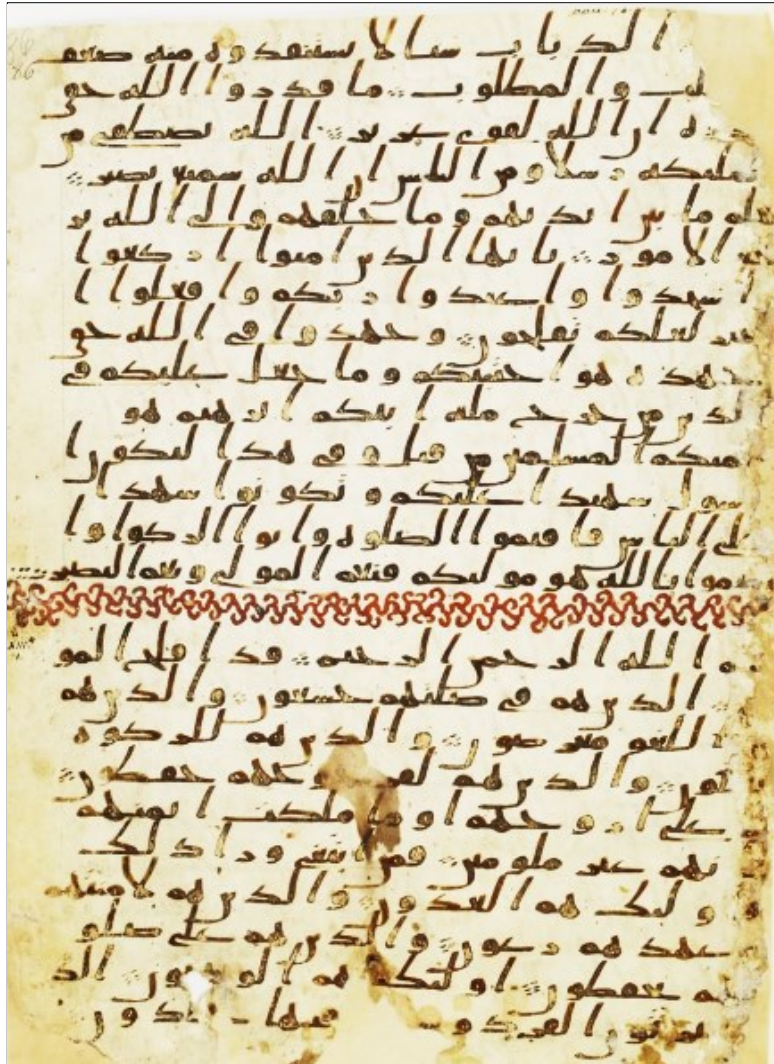 الذباب شيا لا يستنقذوه منه ضعف
لب والمطلوب ما قدروا الله حق
ره ان الله لقوى عزيز الله يصطفى من
الملئكه رسلا ومن الناس ان الله سميع بصير
يعلم ما بين ايديهم وما خلفهم والى الله تر
جع الامور يايها الذين امنوا اركعوا
واسجدوا واعبدوا ربكم وافعلوا ا
لخير لعلكم تفلحون وجهدوا فى الله حق
جهده هو اجتبيكم وما جعل عليكم فى
الدين من حرج مله ابيكم ابرهيم هو
سميكم المسلمين من قبل وفى هذا ليكون ا
لرسول شهيدا عليكم وتكونوا شهدا
على الناس فاقيموا الصلوه واتوا الزكوه وا
عتصموا بالله هو موليكم فنعم المولى ونعم النصير
الله الرحمن الرحيم قد افلح المو
الذين هم فى صلتهم خشعون والذين هم
اللغو معرضون والذين هم للزكوه
فعلون والذين هم لفروجهم حفظون
على ازوجهم او ما ملكت ايمنهم
نهم غير ملومين فمن ابتغى ورا ذلك
ولئك هم العدون والذين هم لامنتهم
وعهدهم رعون والذين هم على صلو
تهم يحفظون اولئك هم الورثون الذ
ين يرثون الفردوس فيها خلدون